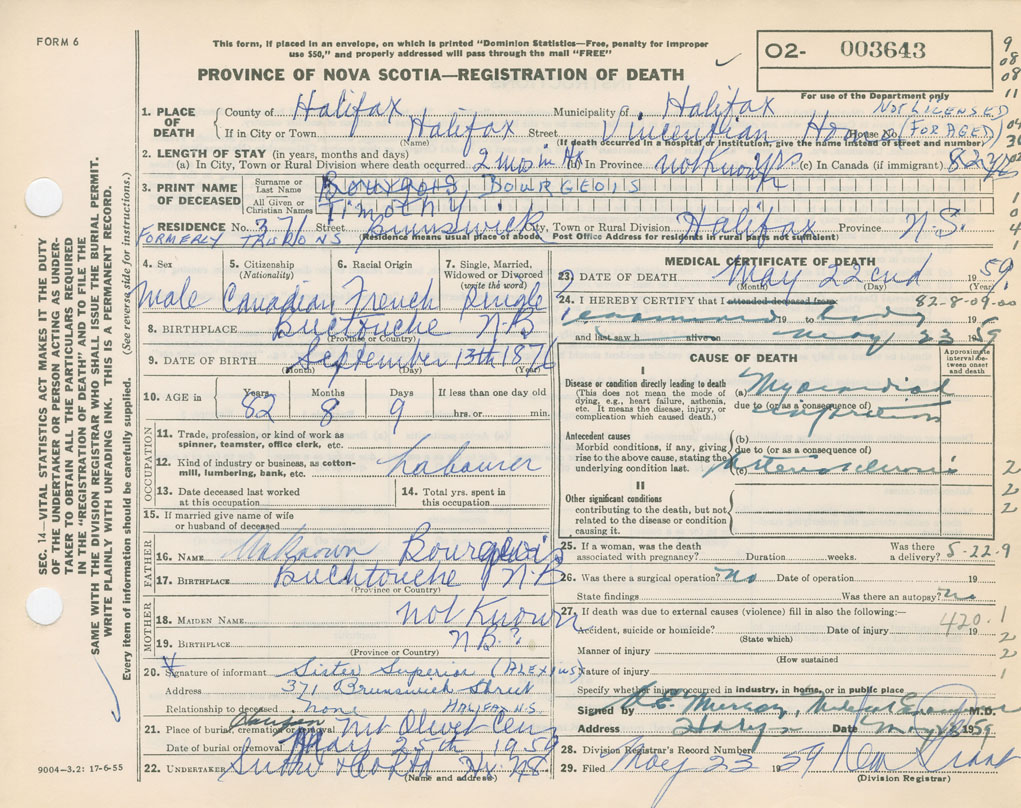 FORM 6
This form, if placed in an envelope, on which is printed "Dominion Statistics—Free, penalty for improper
use $50," and properly addressed will pass through the mail "FREE"
PROVINCE OF NOVA SCOTIA—REGISTRATION OF DEATH
O2- 003643
For use of the Department only
9
08
08
11
04
1. PLACE OF DEATH
County of Halifax Municipality of Halifax NOT LICENSED
If in City or Town Halifax Street Vincentian Home House No. (FOR AGED)
(Name) (If death occurred in a hospital or institution, give the name instead of street and number)
2. LENGTH OF STAY (in years, months and days)
(a) In City, Town or Rural Division where death occurred 2 mo in (b) In Province not Know yrs (c) In Canada (if immigrant) 82 yrs
3. PRINT NAME OF DECEASED
Surname or Last Name BOURGEOIS
All Given or Christian Names Timothy
RESIDENCE No. 371 Street Brunswick City, Town or Rural Division Halifax Province N.S.
FORMERLY
Residence means usual place of abode. Post Office Address for residents in rural parts not sufficient)
4. Sex 5. Citizenship (Nationality) 6. Racial Origin 7. Single, Married, Widowed or Divorced (write the word)
Male Canadian French Single
8. BIRTHPLACE Buctouche N.B
(Province or Country)
9. DATE OF BIRTH September 13th 1876
(Month) (Day) (Year)
10. AGE in Years Months Days If less than one day old
82 8 9 hrs. or min.
OCCUPATION
11. Trade, profession, or kind of work as
spinner, teamster, office clerk, etc.
12. Kind of industry or business, as cotton-
mill, lumbering, bank, etc. Labourer
13. Date deceased last worked
at this occupation
14. Total yrs. spent in
this occupation
15. If married give name of wife
or husband of deceased
FATHER
16. NAME Unknown Bourgeois
17. BIRTHPLACE Buchtouche N.B
(Province or Country)
MOTHER
18. MAIDEN NAME not Known
19. BIRTHPLACE N.B.?
(Province or Country)
20. Signature of informant Sister Superior (ALEXIUS)
Address 371 Brunswick Street
Relationship to deceased none HALIFAX N.S.
21. Place of burial, cremation or removal Mt Olivet Cem
Date of burial or removal May 25th 1959
22. UNDERTAKER
(Name and address)
MEDICAL CERTIFICATE OF DEATH
23. DATE OF DEATH May 22cnd 1959
(Month) (Day) (Year)
24. I HEREBY CERTIFY that I attended deceased from 82-8-09-00
examined 19 to body 19
and last saw h alive on May 23 1959
CAUSE OF DEATH
Approximate interval between onset and death
I
Disease or condition directly leading to death
(This does not mean the mode of
dying, e.g., heart failure, asthenia,
etc. It means the disease, injury, or
complication which caused death.)
(a) Myocardial
due to (or as a consequence of)
infarction
Antecedent causes
Morbid conditions, if any, giving
rise to the above cause, stating the
underlying condition last.
(b)
due to (or as a consequence of)
(c) Arteriosclerosis
2
2
2
II
Other significant conditions
contributing to the death, but not
related to the disease or condition
causing it.
25. If a woman, was the death
associated with pregnancy? Duration weeks. Was there a delivery? 5-22-9
26. Was there a surgical operation? No Date of operation 19
State findings Was there an autopsy? no
27. If death was due to external causes (violence) fill in also the following:—
Accident, suicide or homicide? Date of injury 19
(State which)
420.1
Manner of injury
(How sustained)
Nature of injury
Specify whether injury occurred in industry, in home, or in public place
Signed by Murray, Medical Examiner M.D.
Address Date May 1959
28. Division Registrar's Record Number
29. Filed May 23 1959
(Division Registrar)
SEC. 14—VITAL STATISTICS ACT MAKES IT THE DUTY
OF THE UNDERTAKER OR PERSON ACTING AS UNDER-
TAKER TO OBTAIN ALL THE PARTICULARS REQUIRED
IN THE "REGISTRATION OF DEATH" AND TO FILE THE
SAME WITH THE DIVISION REGISTRAR WHO SHALL ISSUE THE BURIAL PERMIT.
WRITE PLAINLY WITH UNFADING INK. THIS IS A PERMANENT RECORD.
Every item of information should be carefully supplied. (See reverse side for instructions.)
9004-3.2: 17-6-55